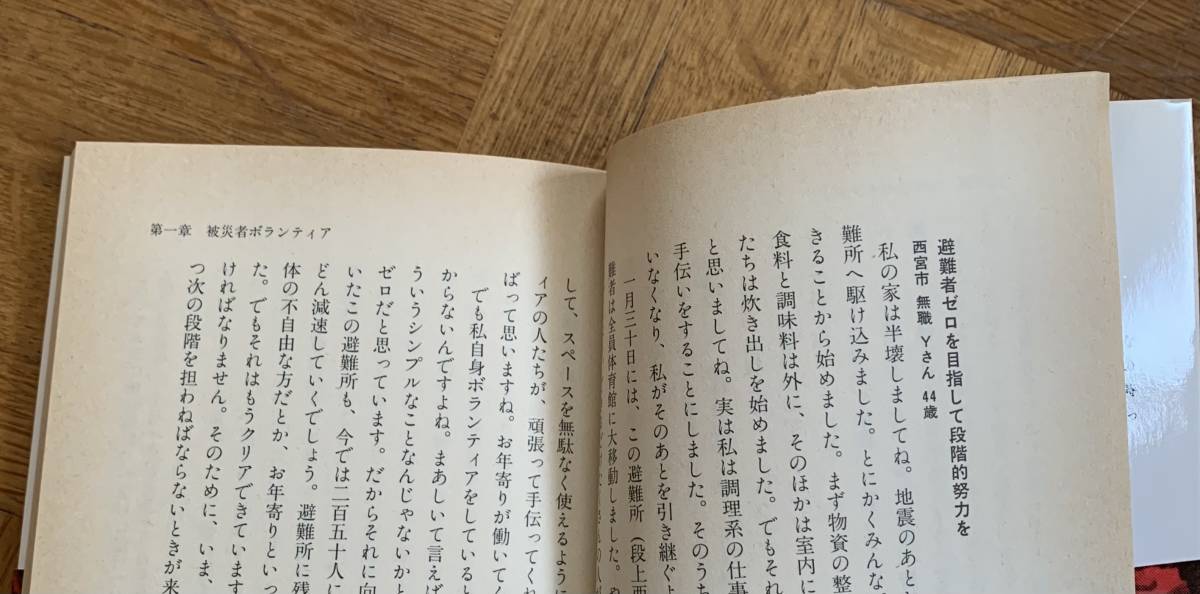 避難者ゼロを目指して段階的努力を
西宮市 無職 Yさん 44歳
私の家は半壊しましてね。地震のあと
難所へ駆け込みました。とにかくみんな
きることから始めました。まず物資の整
食料と調味料は外に、そのほかは室内に
たちは炊き出しを始めました。でもそれ
と思いましてね。実は私は調理系の仕事
手伝いをすることにしました。そのうち
いなくなり、私がそのあとを引き継ぐよ
一月三十日には、この避難所(段上西
難者は全員体育館に大移動しました。
第一章 被災者ボランティア
して、スペースを無駄なく使えるように
ィアの人たちが、頑張って手伝ってくれ
ばって思いますね。お年寄りが働いてく
でも私自身ボランティアをしていると
からないんですよね。まあしいて言えば
ういうシンプルなことなんじゃないかと
ゼロだと思っています。だからそれに向
いたこの避難所も、今では二百五十人に
どん減速していくでしょう。避難所に残
体の不自由な方だとか、お年寄りといっ
た。でもそれはもうクリアできています
ければなりません。そのために、いま、
つ次の段階を担わねばならないときが来